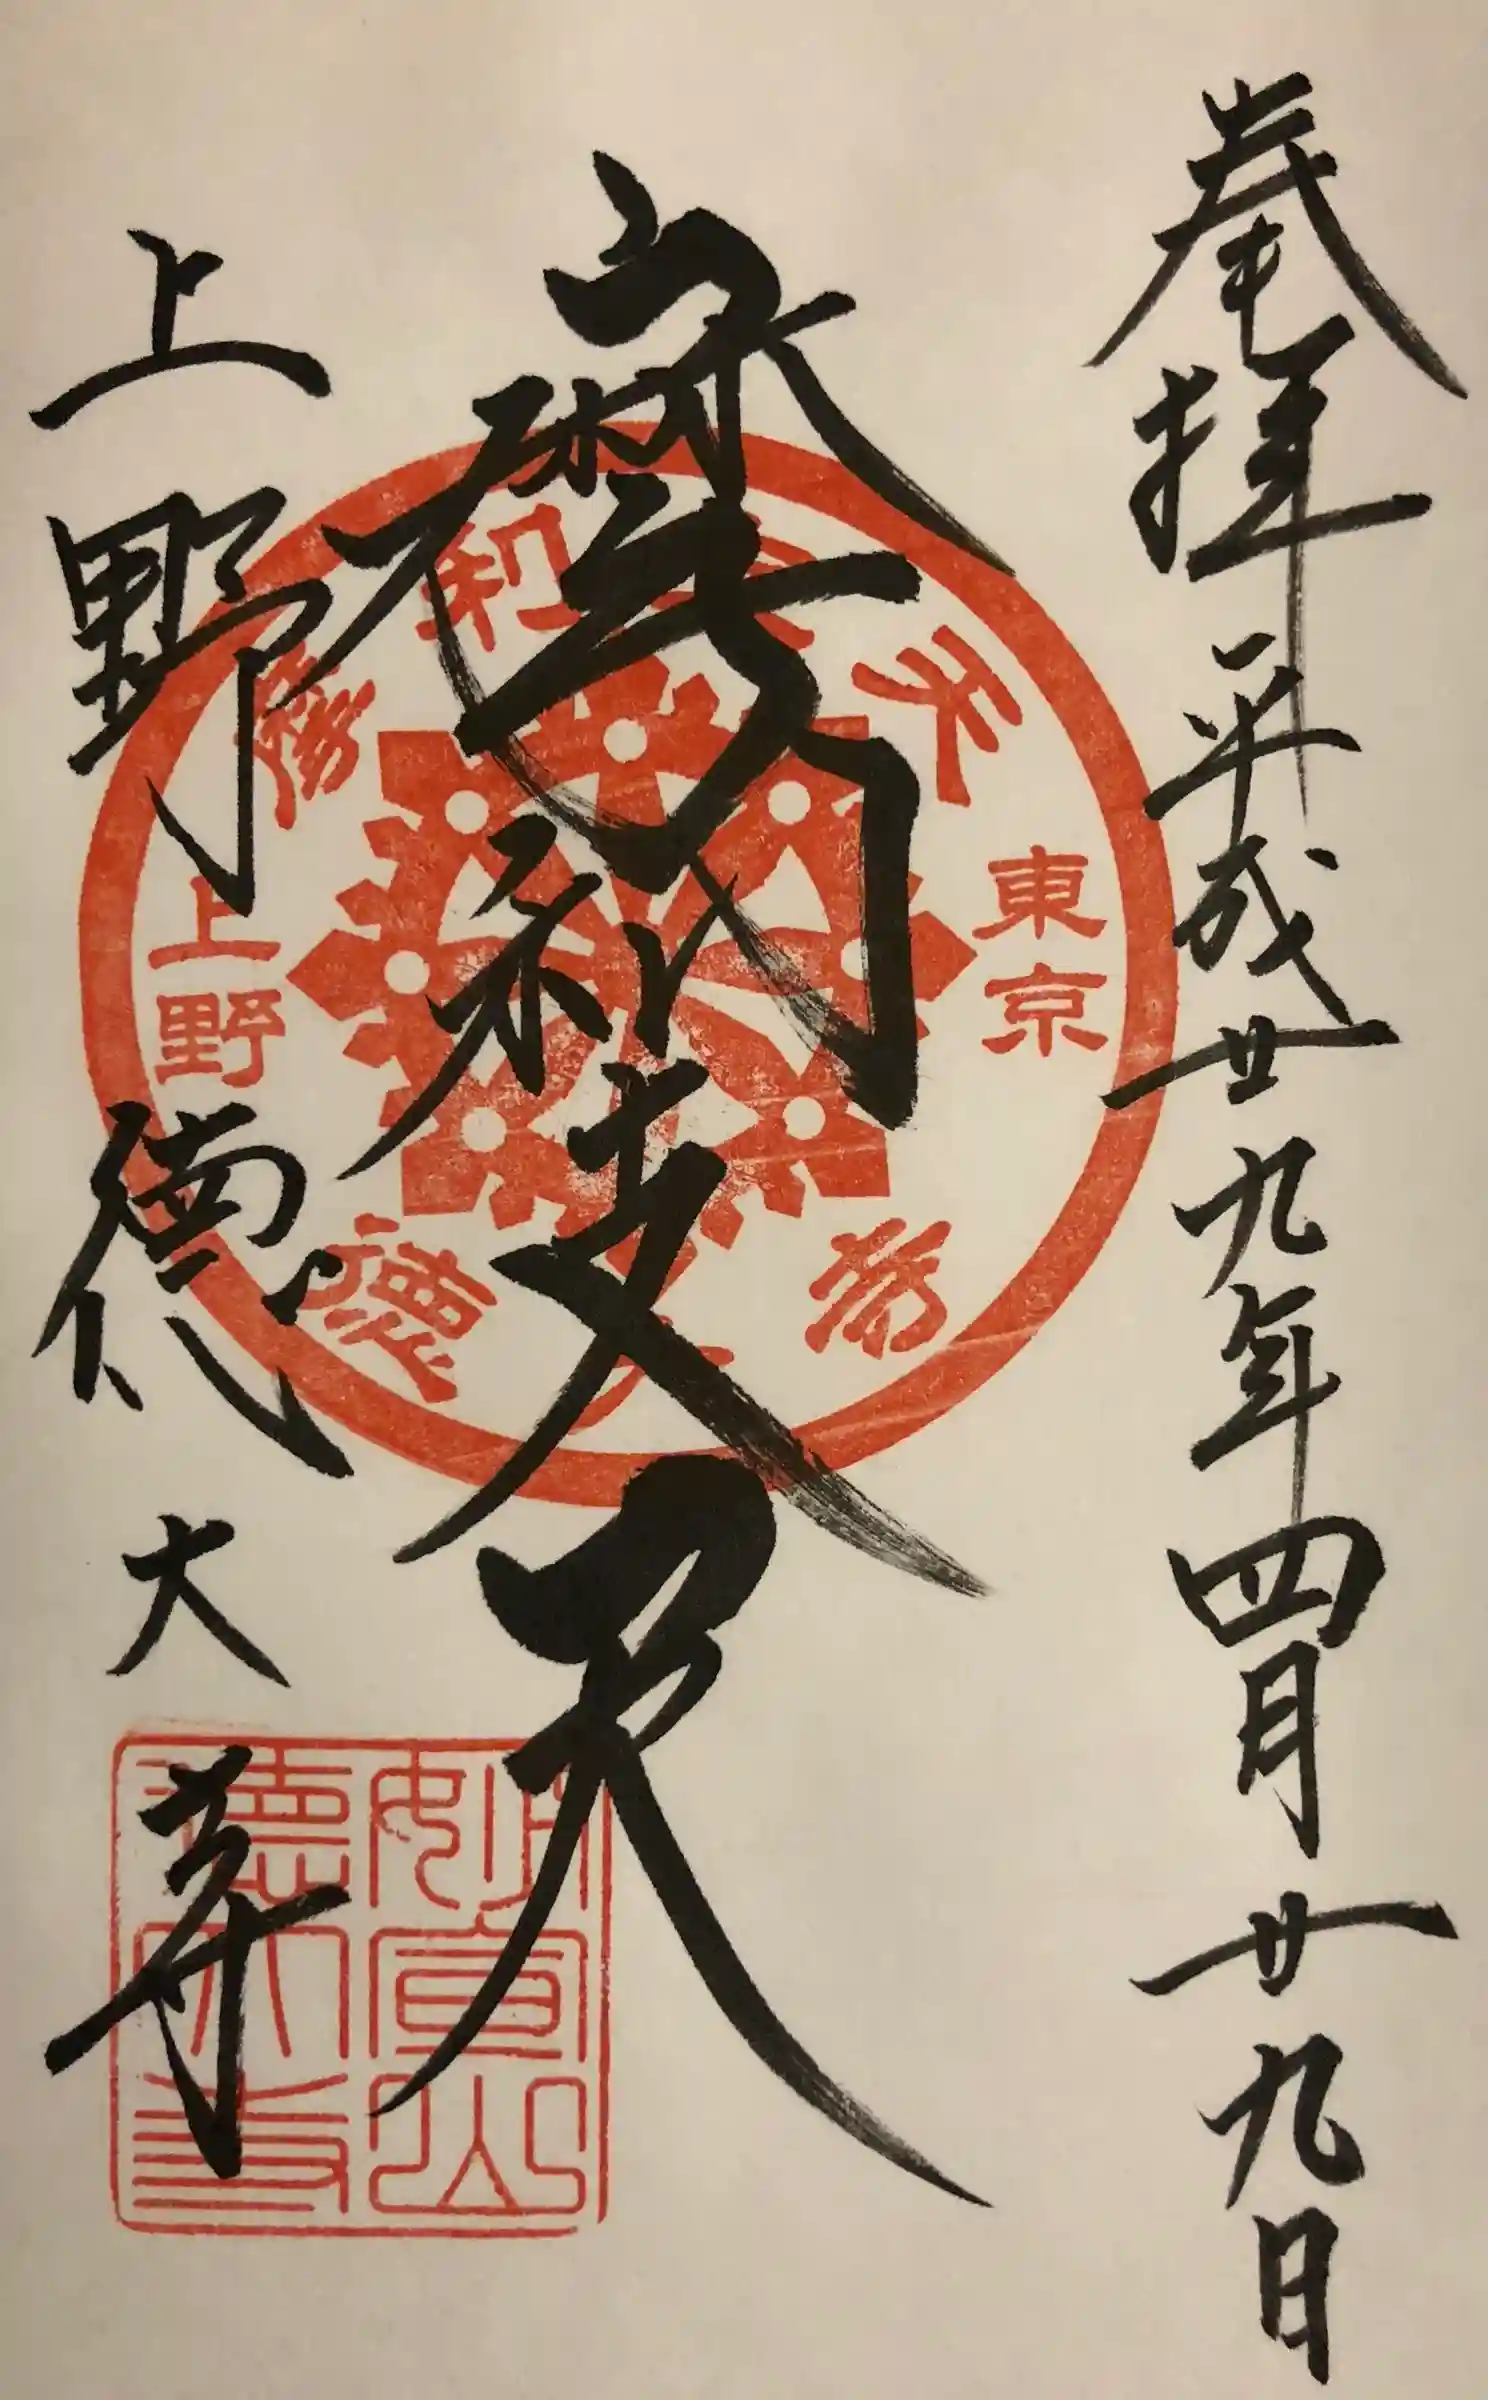 奉拝 平成廿九年四月廿九日
摩利支天
上野 徳大寺
摩利支天
東京
上野
德大寺
妙宣山
德大寺